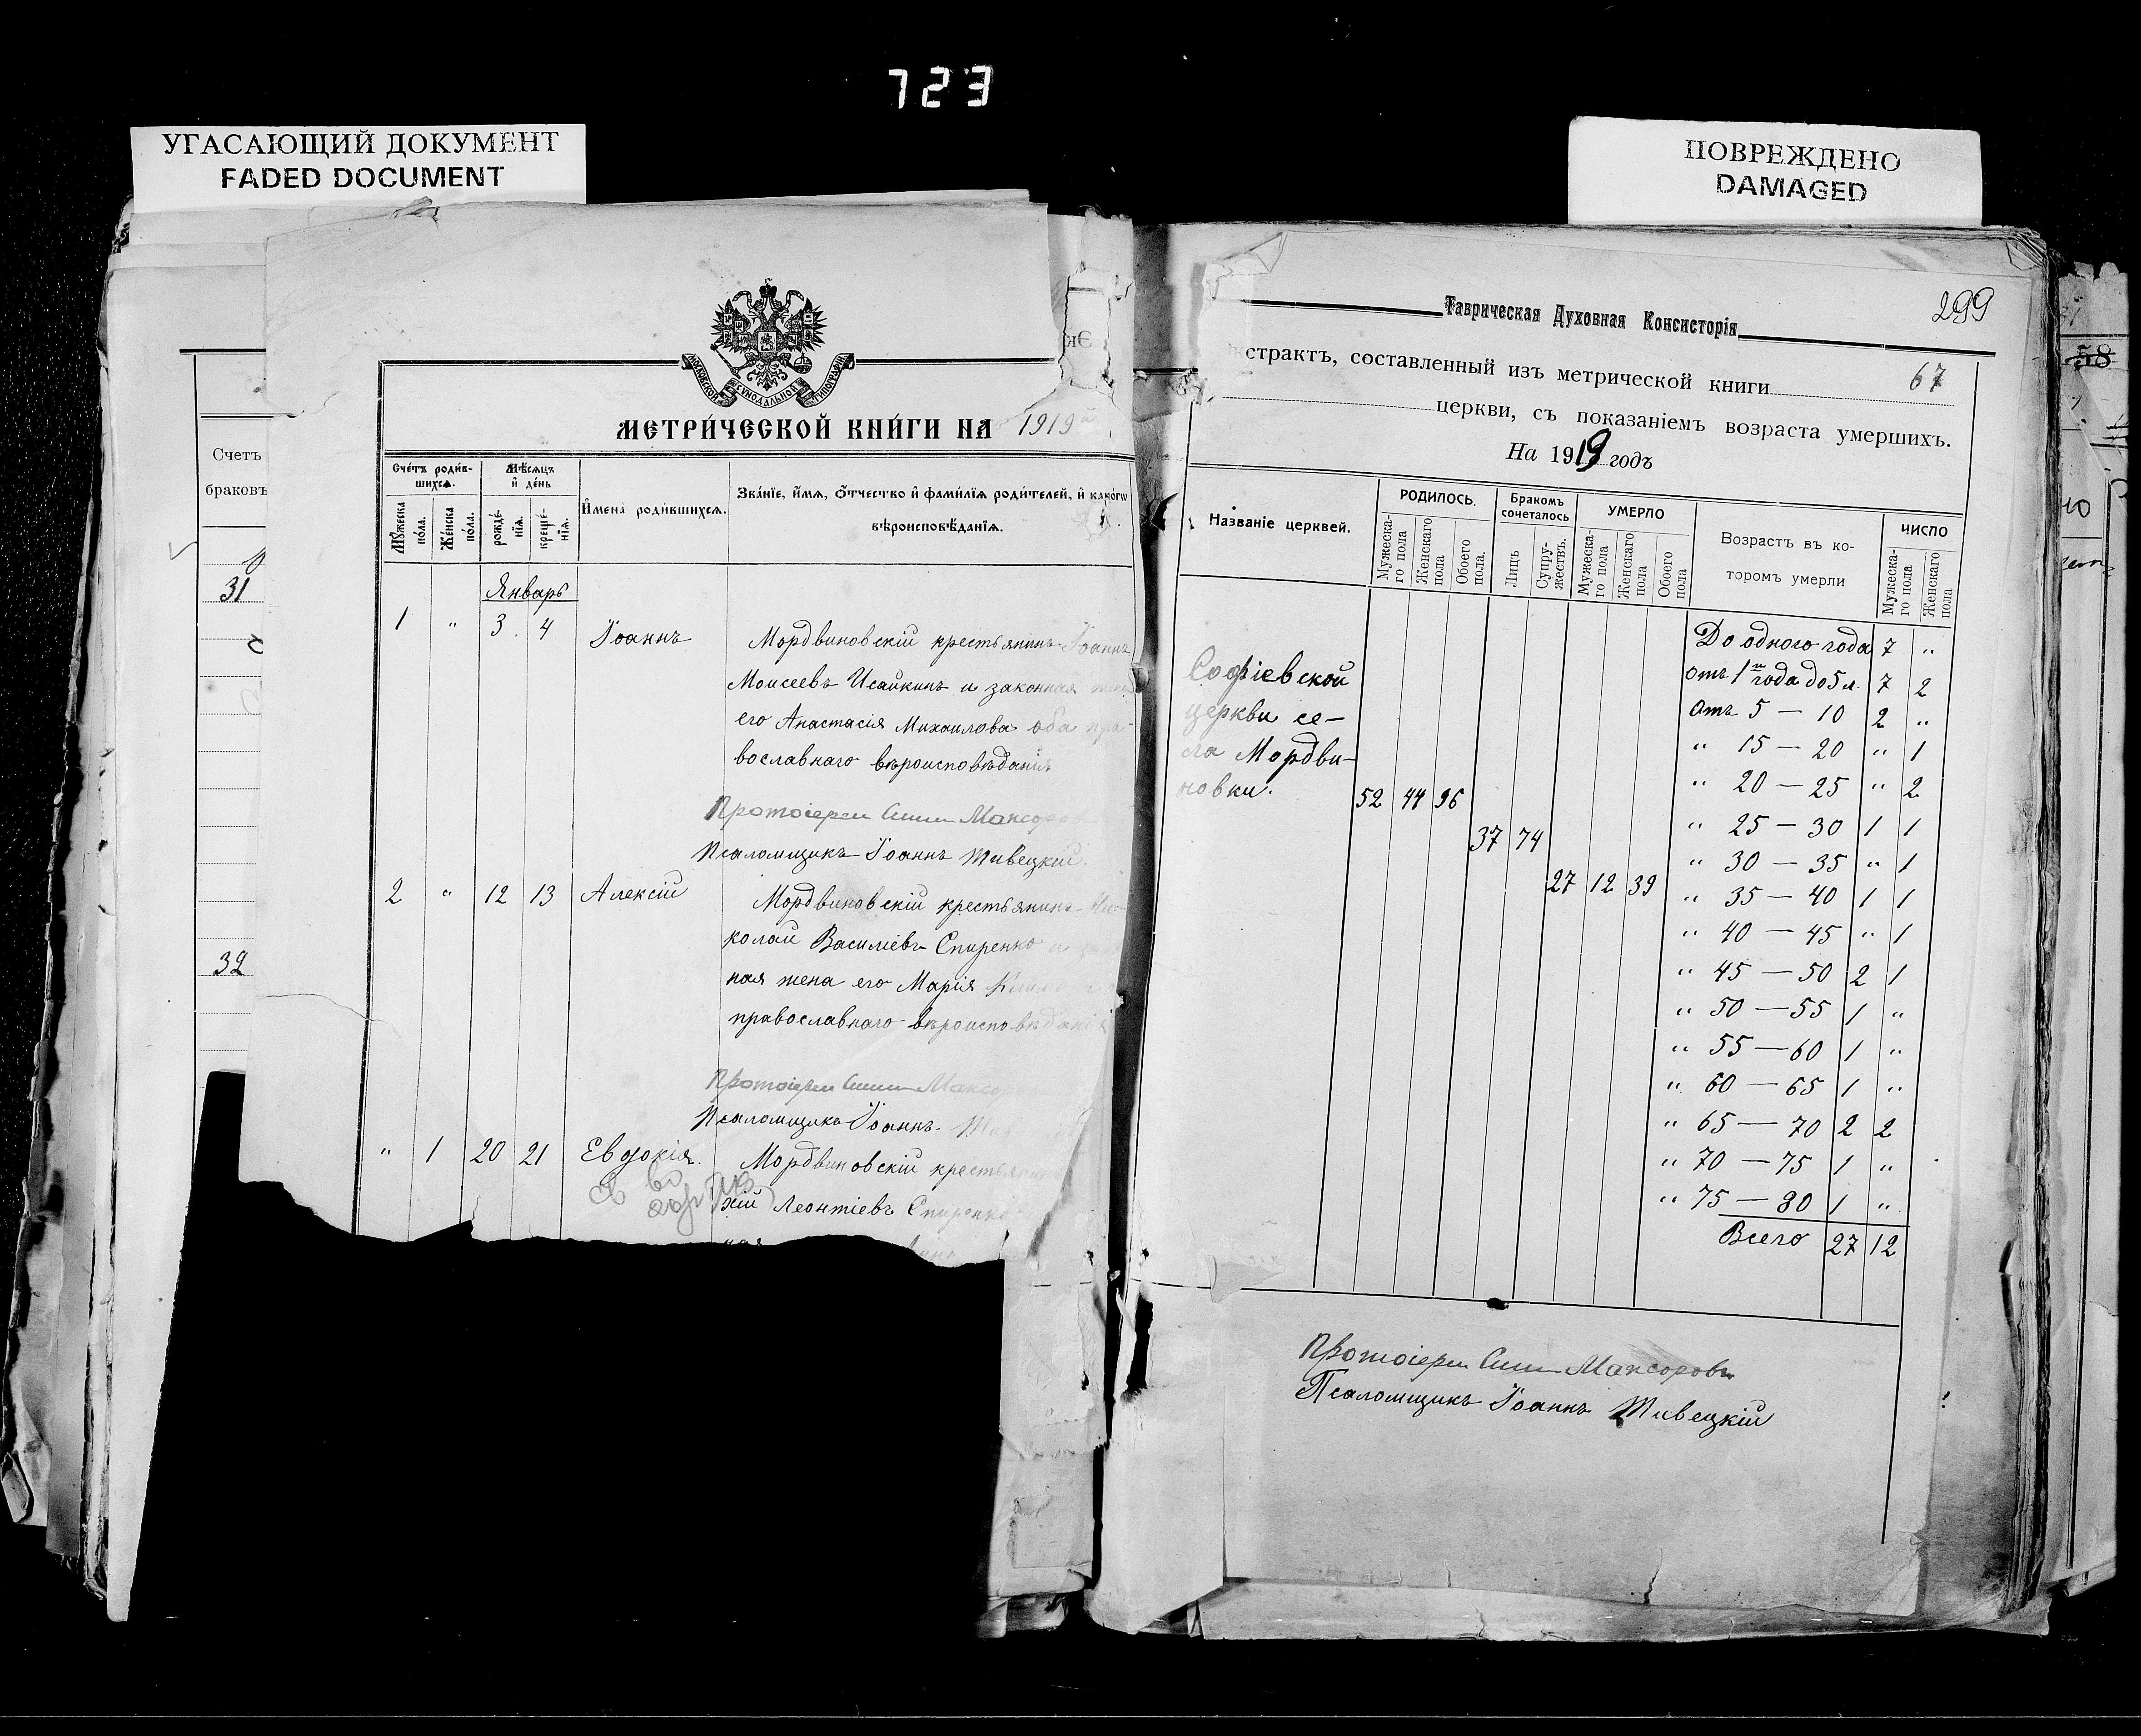 723
УГАСАЮЩИЙ ДОКУМЕНТ
FADED DOCUMENT
ПОВРЕЖДЕНО
DAMAGED
Счетъ
браковъ
31
32
МОСКОВСКОЙ СѴНОДАЛЬНОЙ ТИПОГРАФІИ
МЕТРИ́ЧЕСКОЙ КНИ́ГИ НА 1919
Сче́тъ роди́в-
шихсѧ.
Мѣ́сѧцъ
и҆ де́нь
Мꙋ́жеска
по́ла.
Же́нска
по́ла.
рожде́-
нїѧ.
креще́-
нїѧ.
И҆мена̀ роди́вшихсѧ.
Зва́нїе, и҆́мѧ, ѻ҆́тчество и҆ фами́лїѧ роди́телей, и҆ како́гѡ
вѣроисповѣ́данїѧ.
Январь
1 " 3 4 Іоаннъ Мордвиновскій крестьянинъ Іоаннъ
Моисеевъ Исайкинъ и законная жена
его Анастасія Михаилова оба пра-
вославнаго вѣроисповѣданія
Протоіерей Макcоровъ
Псаломщикъ Іоаннъ Тивецкій.
2 " 12 13 Алексій Мордвиновскій крестьянинъ Ни-
колай Василіевъ Спиренко и
ная жена его Марія
православнаго вѣроисповѣданія
Протоіерей
Псаломщикъ Іоаннъ
" 1 20 21 Евдокія. Мордвиновскій крестьянинъ
кій Леонтіевъ Спиренко
ная
299
Таврическая Духовная Консисторія
страктъ, составленный изъ метрической книги 67
церкви, съ показаніемъ возраста умершихъ.
На 1919 годъ
Названіе церквей.
РОДИЛОСЬ.
Мужеска-
го пола
Женскаго
пола
Обоего
пола.
Бракомъ
сочеталось
Лицъ
Супру-
жествъ.
УМЕРЛО
Мужеска-
го пола
Женскаго
пола
Обоего
пола
Возрастъ въ ко-
торомъ умерли
ЧИСЛО
Мужеска-
го пола
Женскаго
пола
Софіевской
церкви се-
ла Мордви-
новки.
52 44 96
37 74
27 12 39
До одного года 7 "
отъ 1 го года до 5 л. 7 2
Отъ 5 — 10 2 "
" 15 — 20 " 1
" 20 — 25 " 2
" 25 — 30 1 1
" 30 — 35 " 1
" 35 — 40 1 1
" 40 — 45 " 1
" 45 — 50 2 1
" 50 — 55 1 "
" 55 — 60 1 "
" 60 — 65 1 "
" 65 — 70 2 2
" 70 — 75 1 "
" 75 — 80 1 "
Всего 27 12
Протоіерей Максоровъ
Псаломщикъ Іоаннъ Тивецкій
58